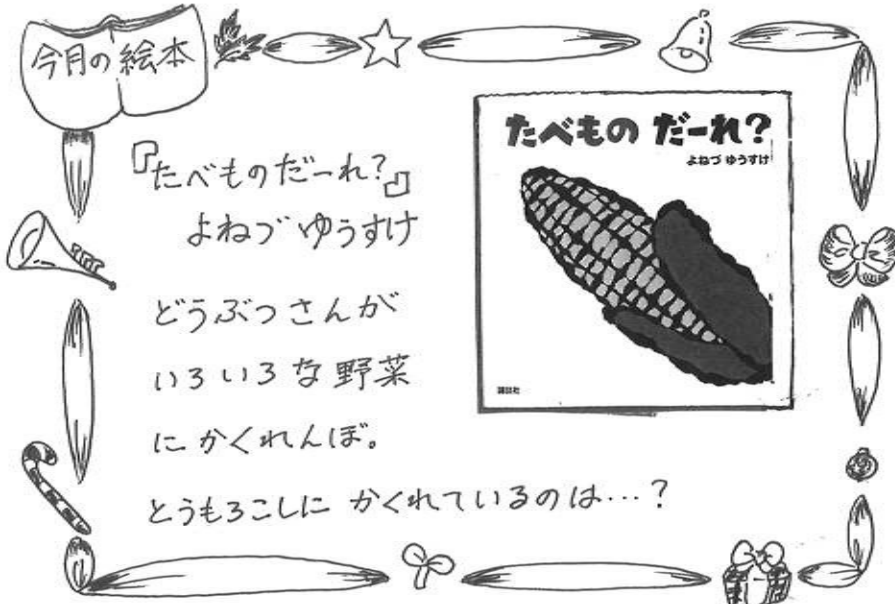 今月の絵本
『たべものだーれ?』
よねづ ゆうすけ
どうぶつさんが
いろいろな野菜
に かくれんぼ。
とうもろこしに かくれているのは…?
たべもの だーれ?
よねづ ゆうすけ
講談社